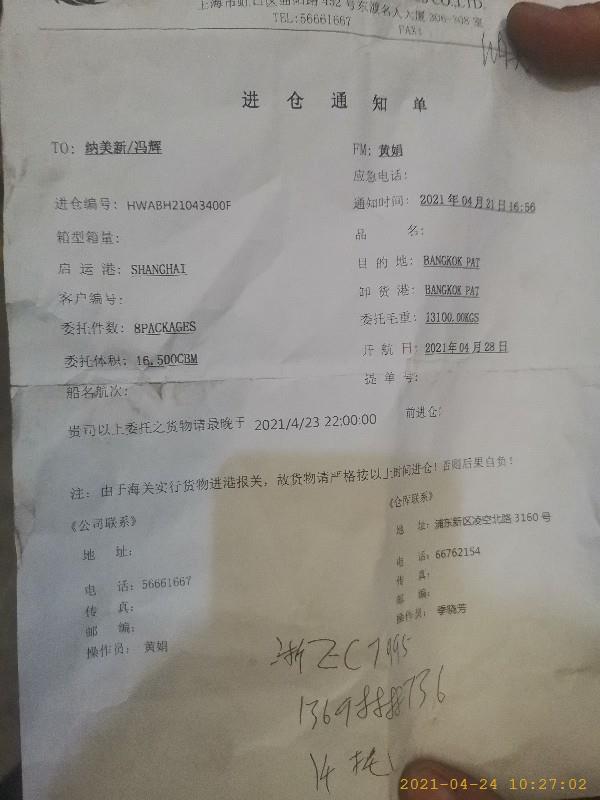 CO.,LTD.
TEL:56661667
FAX:
进仓通知单
TO: 纳美新/冯辉
FM: 黄娟
应急电话:
进仓编号: HWABH21043400F
通知时间: 2021年04月21日16:56
箱型箱量:
品 名:
启运港: SHANGHAI
目的地: BANGKOK PAT
客户编号:
卸货港: BANGKOK PAT
委托件数: 8PACKAGES
委托毛重: 13100.00KGS
委托体积: 16.500CBM
开航日: 2021年04月28日
船名航次:
提单号:
贵司以上委托之货物请最晚于 2021/4/23 22:00:00 前进仓:
注: 由于海关实行货物进港报关, 故货物请严格按以上时间进仓!否则后果自负!
《公司联系》
《仓库联系》
地 址:
地 址: 浦东新区凌空北路3160号
电 话: 56661667
电 话: 66762154
传 真:
传 真:
邮 编:
邮 编:
操作员: 黄娟
操作员: 季晓芳
浙
2021-04-24 10:27:02